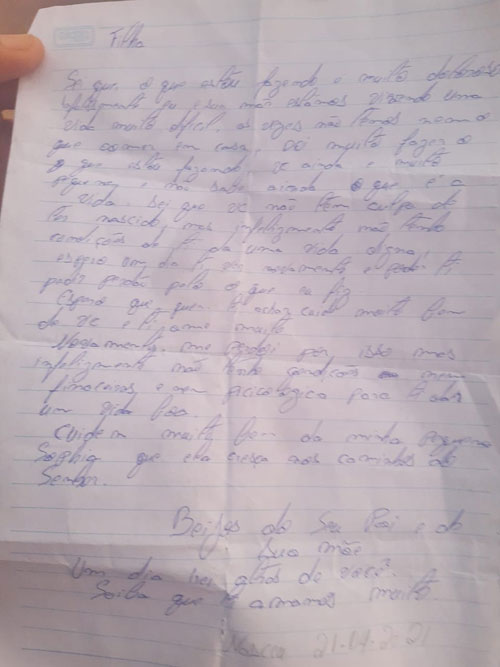 Filha
Sei que o que estou fazendo e muito doloroso
infelizmente eu e sua mãe estamos vivendo uma
vida muito dificil, as vezes não temos nem o
que comer em casa, Doi muito fazer o
o que estou fazendo, vc ainda e muito
pequena e não sabe ainda o que é a
vida. Sei que vc não têm culpa de
ter nascido, mas infelizmente não tenho
condições de ti da uma vida digna,
espero um dia ti ver novamente e poder ti
pedir perdão pelo o que eu fiz
Espero que quem ti achar cuide muito bem
de vc e ti ame muito.
Novamente me perdoi por isso mas
infelizmente não tenho condições nem
financeiras e nem picicologica para ti dar
um vida boa.
Cuidem muito bem da minha pequena
Sophia que ela cresça nos caminhos do
Senhor.
Beijos do Seu Pai e da
Sua mãe
Um dia irei atrás de você.
Saiba que ti amamos muito.
21-04-2021